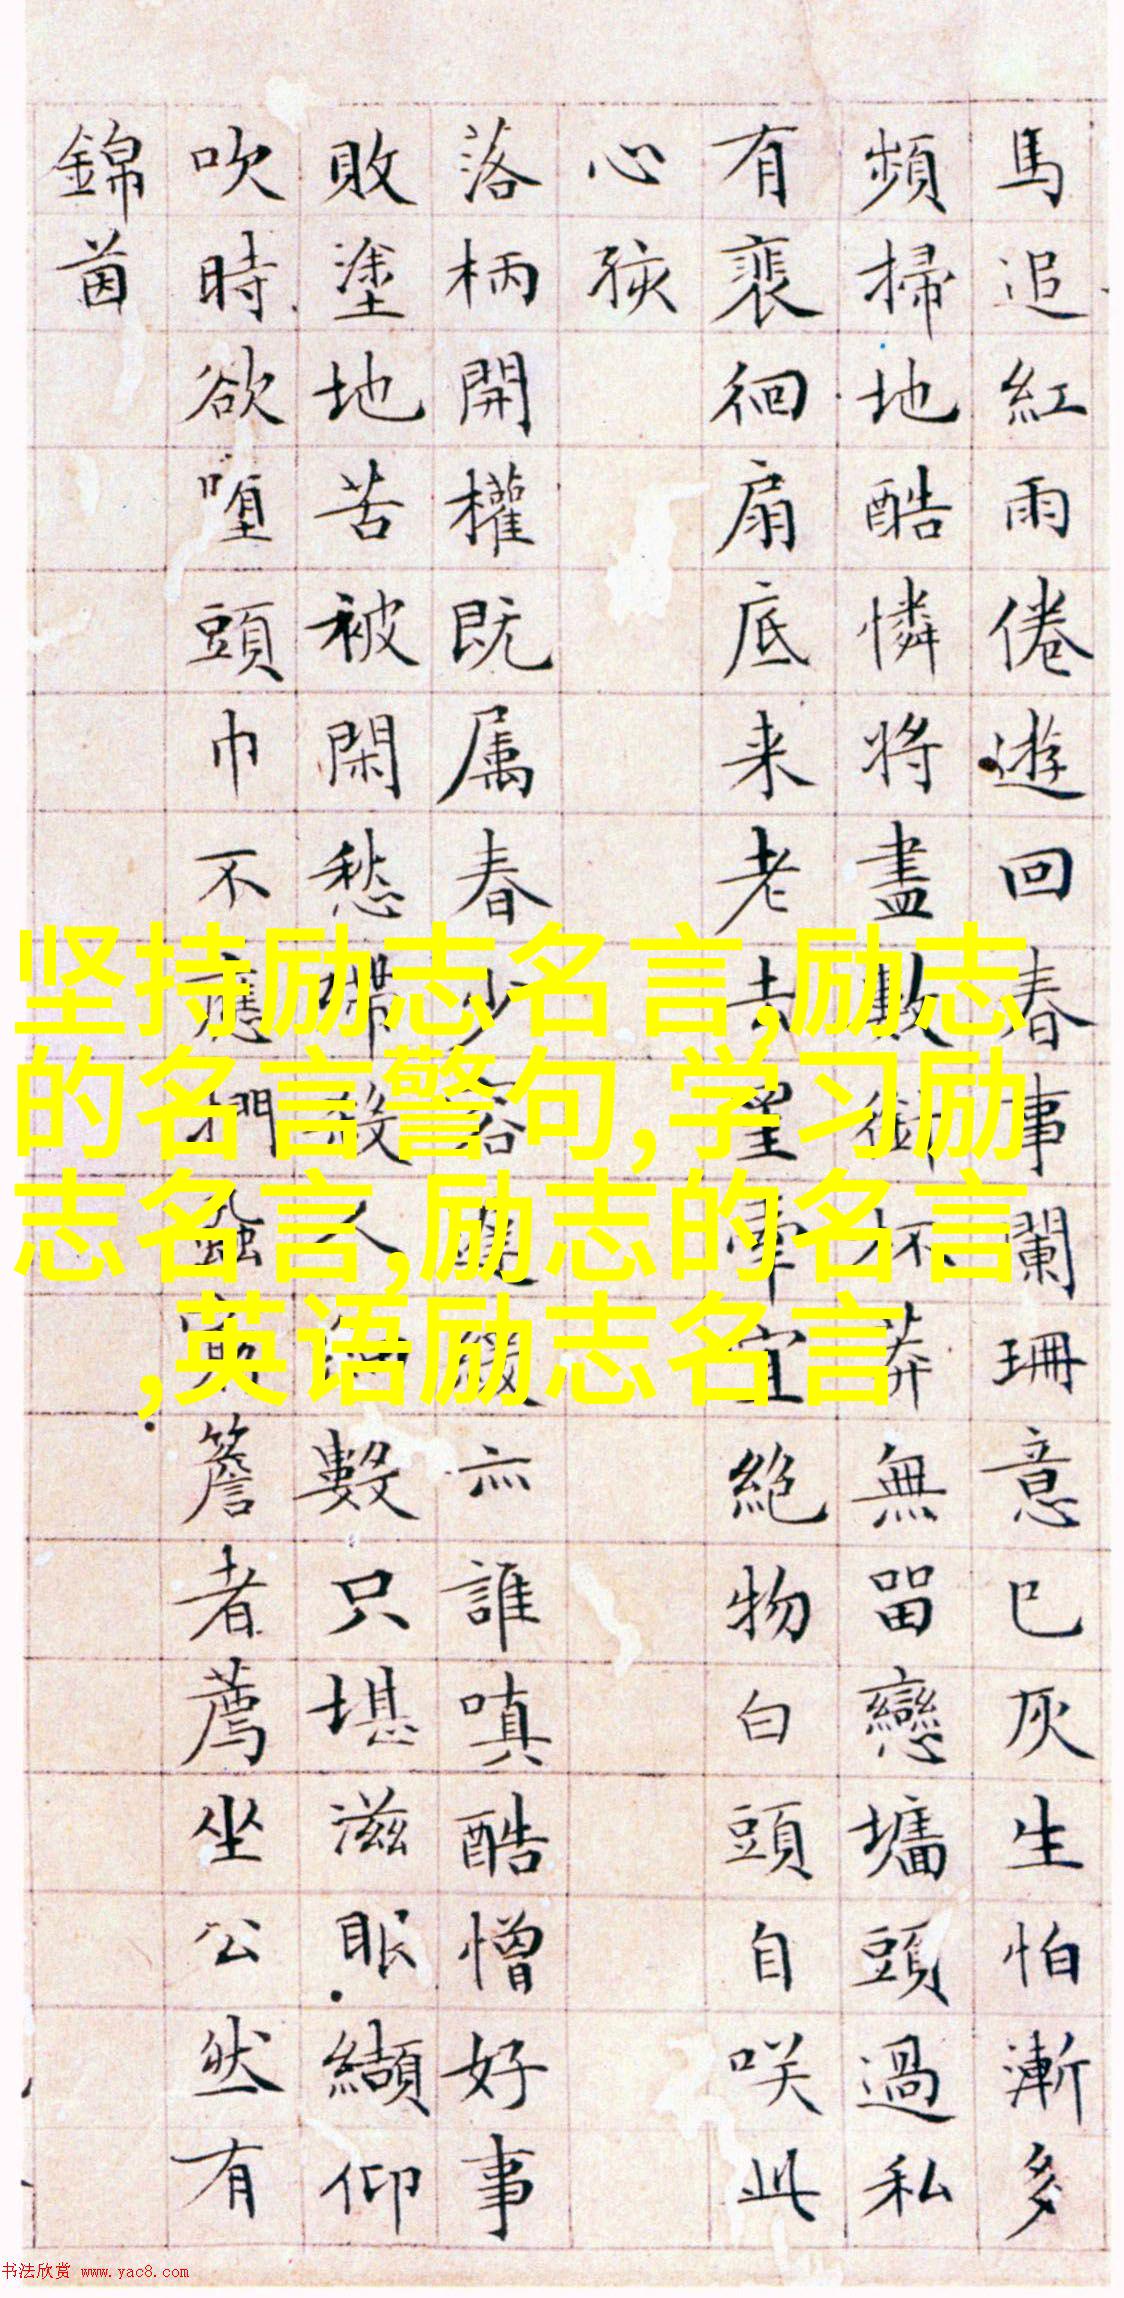 馬追紅雨倦遊回春事闌珊意已灰生怕漸多
頻掃地酷憐將盡數銜杯莽無留戀墻頭過私
有裵徊扇底来老去望塵宜絶物白頭自咲此
心孩
落柄開權既属春少容緩亦誰嗔酷憎好事
敗塗地苦被閑愁帶殺人數只堪滋眼纈仰
吹時欲堕頭巾不應捫蝨窮簷者薦坐公然有
錦茵
坚持励志名言,励志
的名言警句,学习励
志名言,励志的名言
,英语励志名言
书法欣赏 www.yac8.com